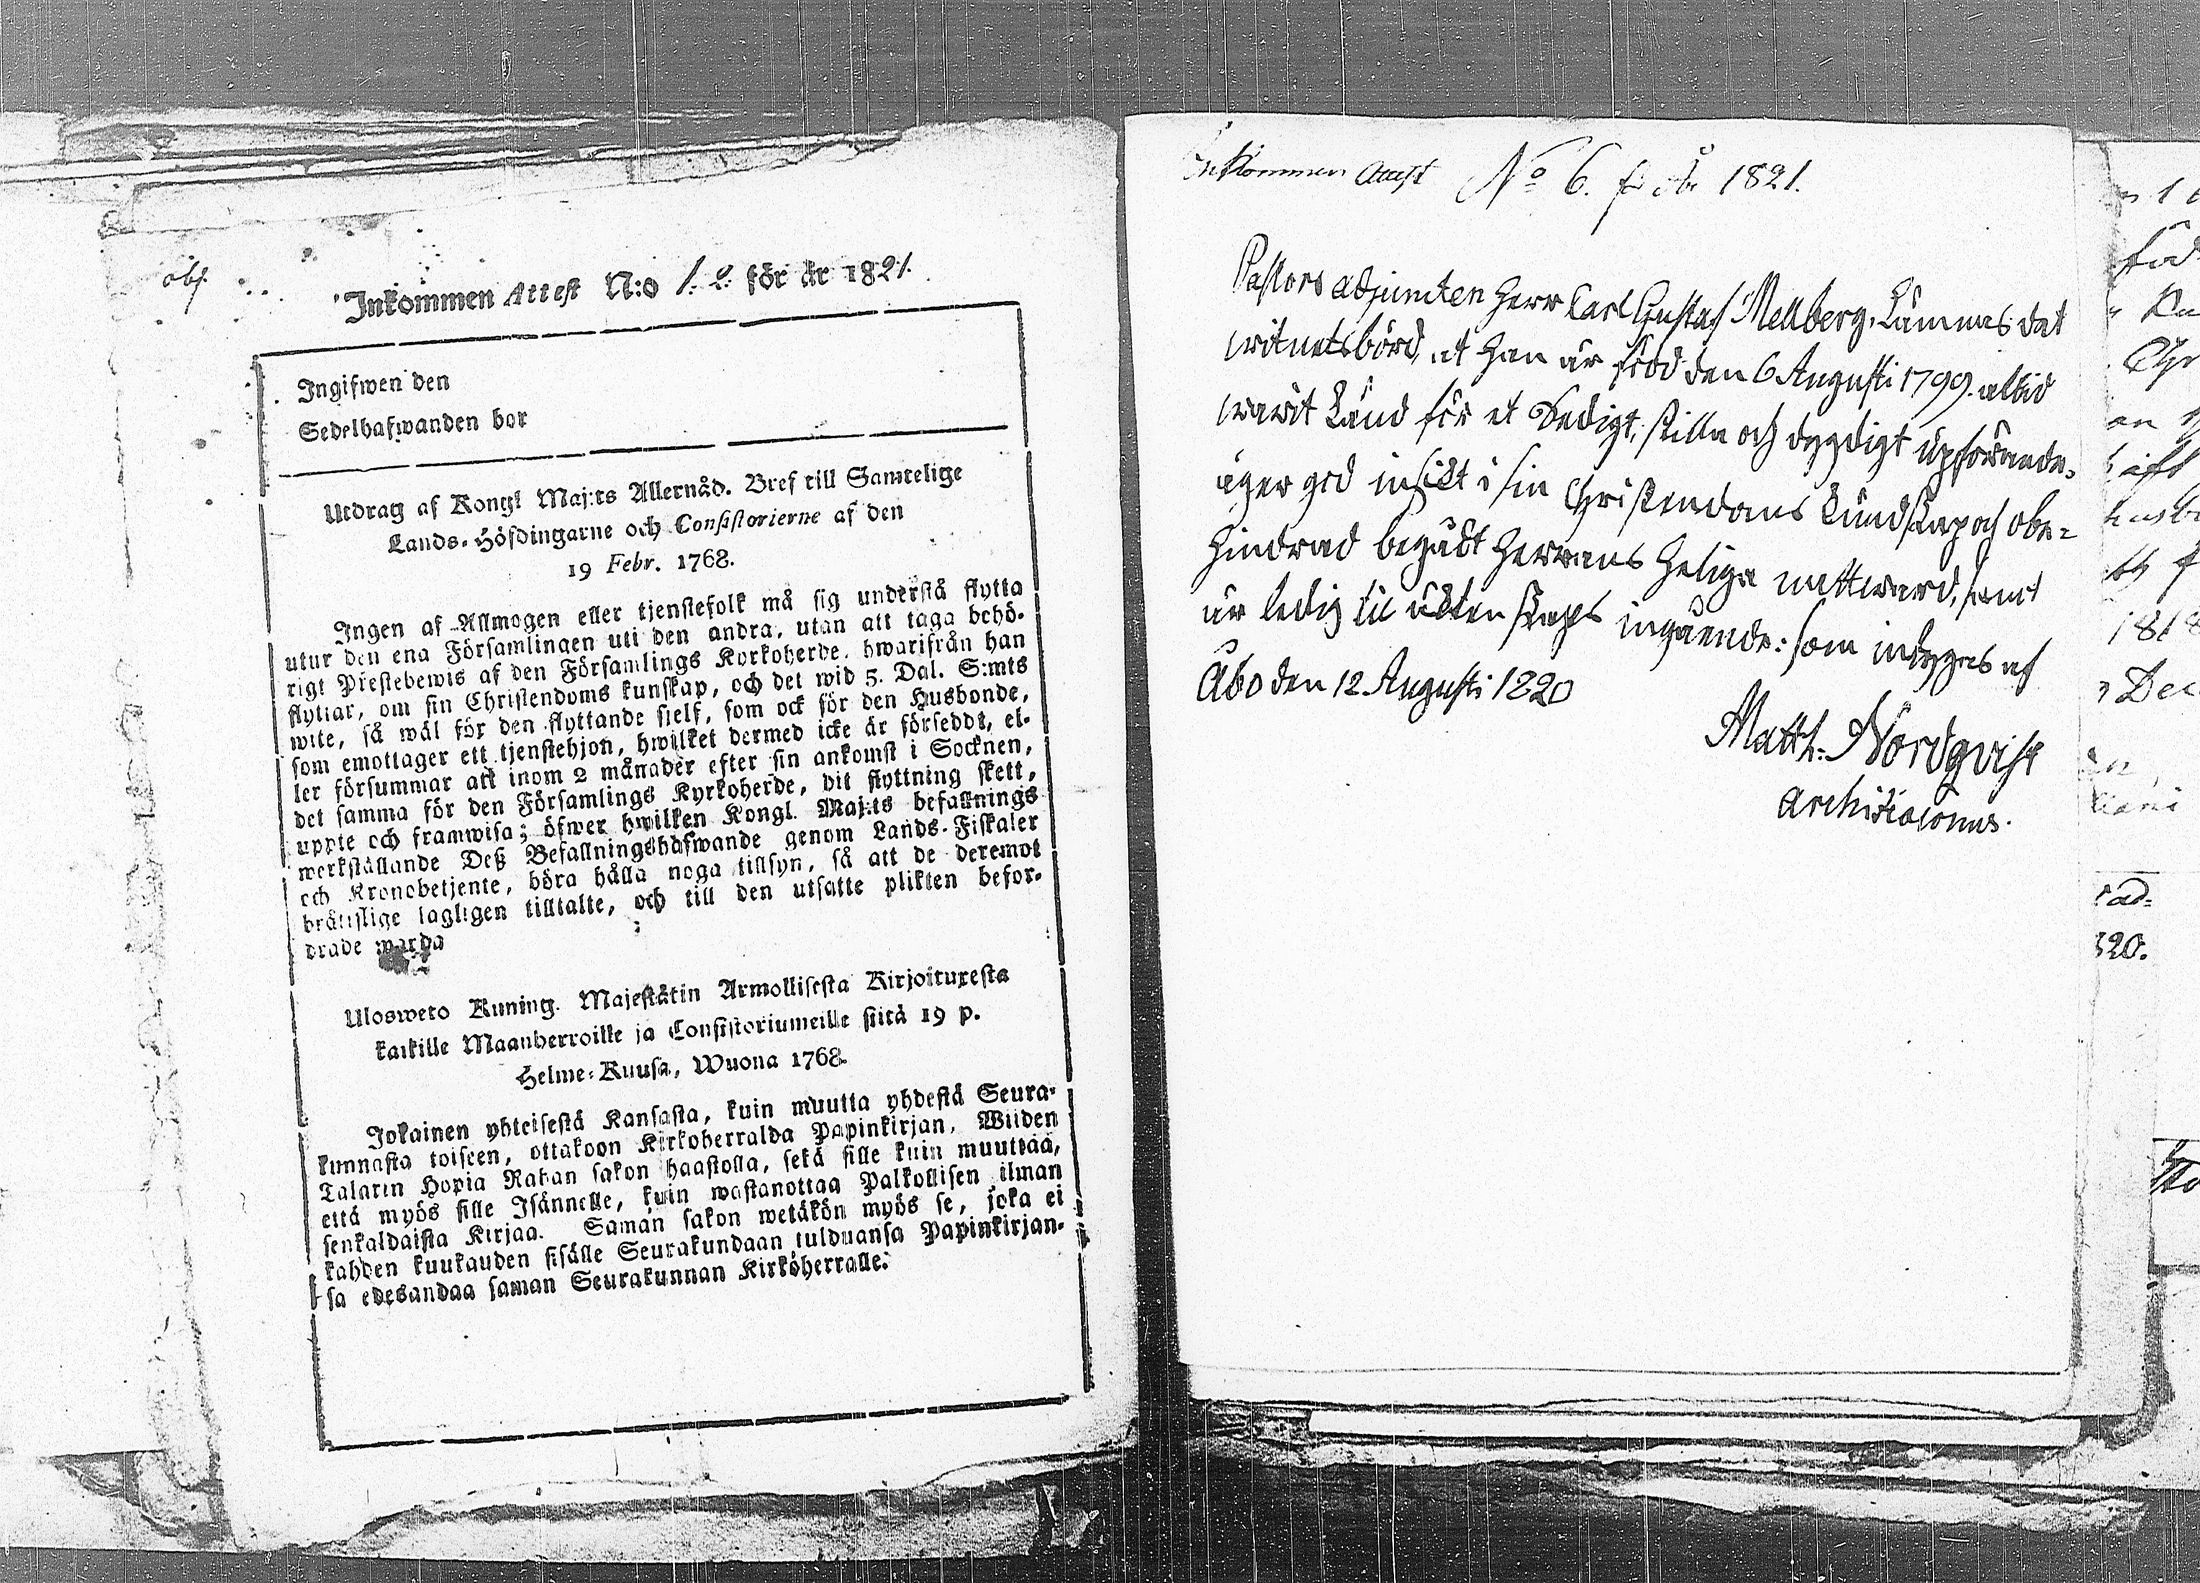 obs.
Inkommen Attest N:o 1. 2. för år 1821.
Ingifwen den
Sedelhafwanden bor
Utdrag af Kongl Maj:ts Allernåd. Bref till Samtelige
Lands-Höfdingarne och Consistorierne af den
19 Febr. 1768.
Ingen af Allmogen eller tjenstefolk må sig understå flytta
utur den ena Församlingen uti den andra, utan att taga behö-
rigt Prestebewis af den Församlings Kyrkoherde, hwarifrån han
flyttar, om sin Christendoms kunskap, och det wid 5. Dal. S:mts
wite, så wäl för den flyttande sjelf, som ock för den Husbonde,
som emottager ett tjenstehjon, hwilket dermed icke är försedt, el-
ler försummar att inom 2 månader efter sin ankomst i Socknen,
det samma för den Församlings Kyrkoherde, dit flyttning skett,
uppte och framwisa; öfwer hwilken Kongl. Maj:ts befallnings
werkställande Deß Befallningshafwande genom Lands-Fiskaler
och Kronobetjente, böra hålla noga tillsyn, så att de deremot
bråttslige lagligen tilltalte, och till den utsatte plikten befor-
drade warda
Ulosweto Kuning. Majestätin Armollisesta Kirjoituxesta
kaikille Maanherroille ja Consistoriumeille siitä 19 p.
Helme-Kuusa, Wuona 1768.
Jokainen yhteisestä Kansasta, kuin muutta yhdestä Seura-
kunnasta toiseen, ottakoon Kirkoherralda Papinkirjan, Wiiden
Talarin Hopia Rahan sakon haastolla, sekä sille kuin muuttaa,
että myös sille Isännelle, kuin wastanottaa Palkollisen ilman
senkaldaista Kirjaa. Saman sakon wetäkön myös se, joka ei
kahden kuukauden sisälle Seurakundaan tulduansa Papinkirjan-
sa edesandaa saman Seurakunnan Kirköherralle.
Inkommen Attest No 6. för år 1821.
Pastors adjuncten Herr Carl Gustaf Mellberg, Lämnas det
witnetsbörd, at han är född den 6 Augusti 1799. altid
warit känd för et Sedigt, stilla och dygdigt upförande,
äger god insikt i sin Christendoms kundskap och obe-
hindrad begådt Herrans Heliga nattward, samt
är ledig til äktenskaps ingående: som intygas af
Åbo den 12 Augusti 1820
Matth: Nordqvist
Archidiaconus.
1818
Dec
ad-
820.